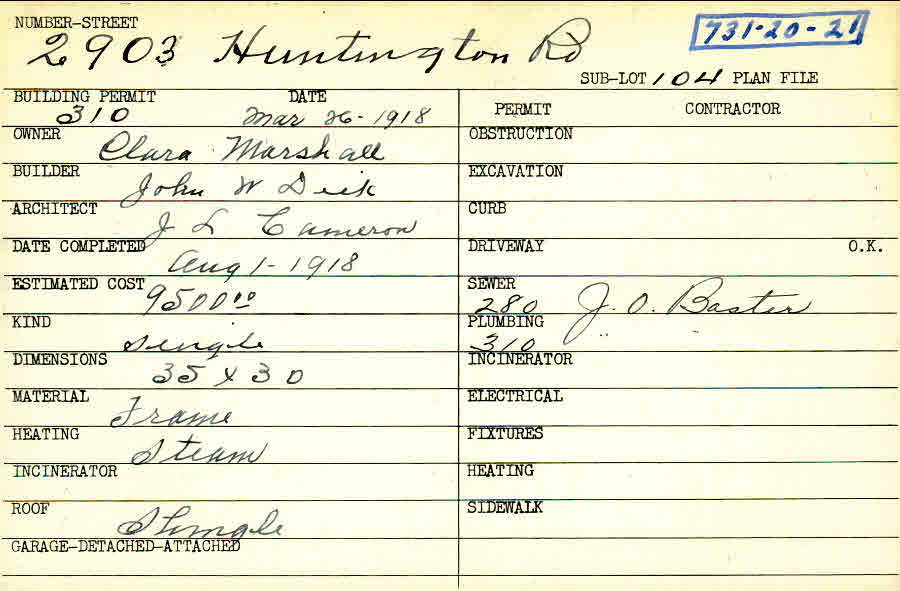 NUMBER-STREET
2903 Huntington Rd
731-20-21
SUB-LOT 104 PLAN FILE
BUILDING PERMIT DATE
310 Mar 26-1918
PERMIT CONTRACTOR
OWNER Clara Marshall
OBSTRUCTION
BUILDER John W Dick
EXCAVATION
ARCHITECT J L Cameron
CURB
DATE COMPLETED Aug 1-1918
DRIVEWAY O.K.
ESTIMATED COST 9500 00
SEWER
280 J. O. Baster
KIND Single
PLUMBING
310 "
DIMENSIONS 35 x 30
INCINERATOR
MATERIAL Frame
ELECTRICAL
HEATING Steam
FIXTURES
INCINERATOR
HEATING
ROOF Shingle
SIDEWALK
GARAGE-DETACHED-ATTACHED